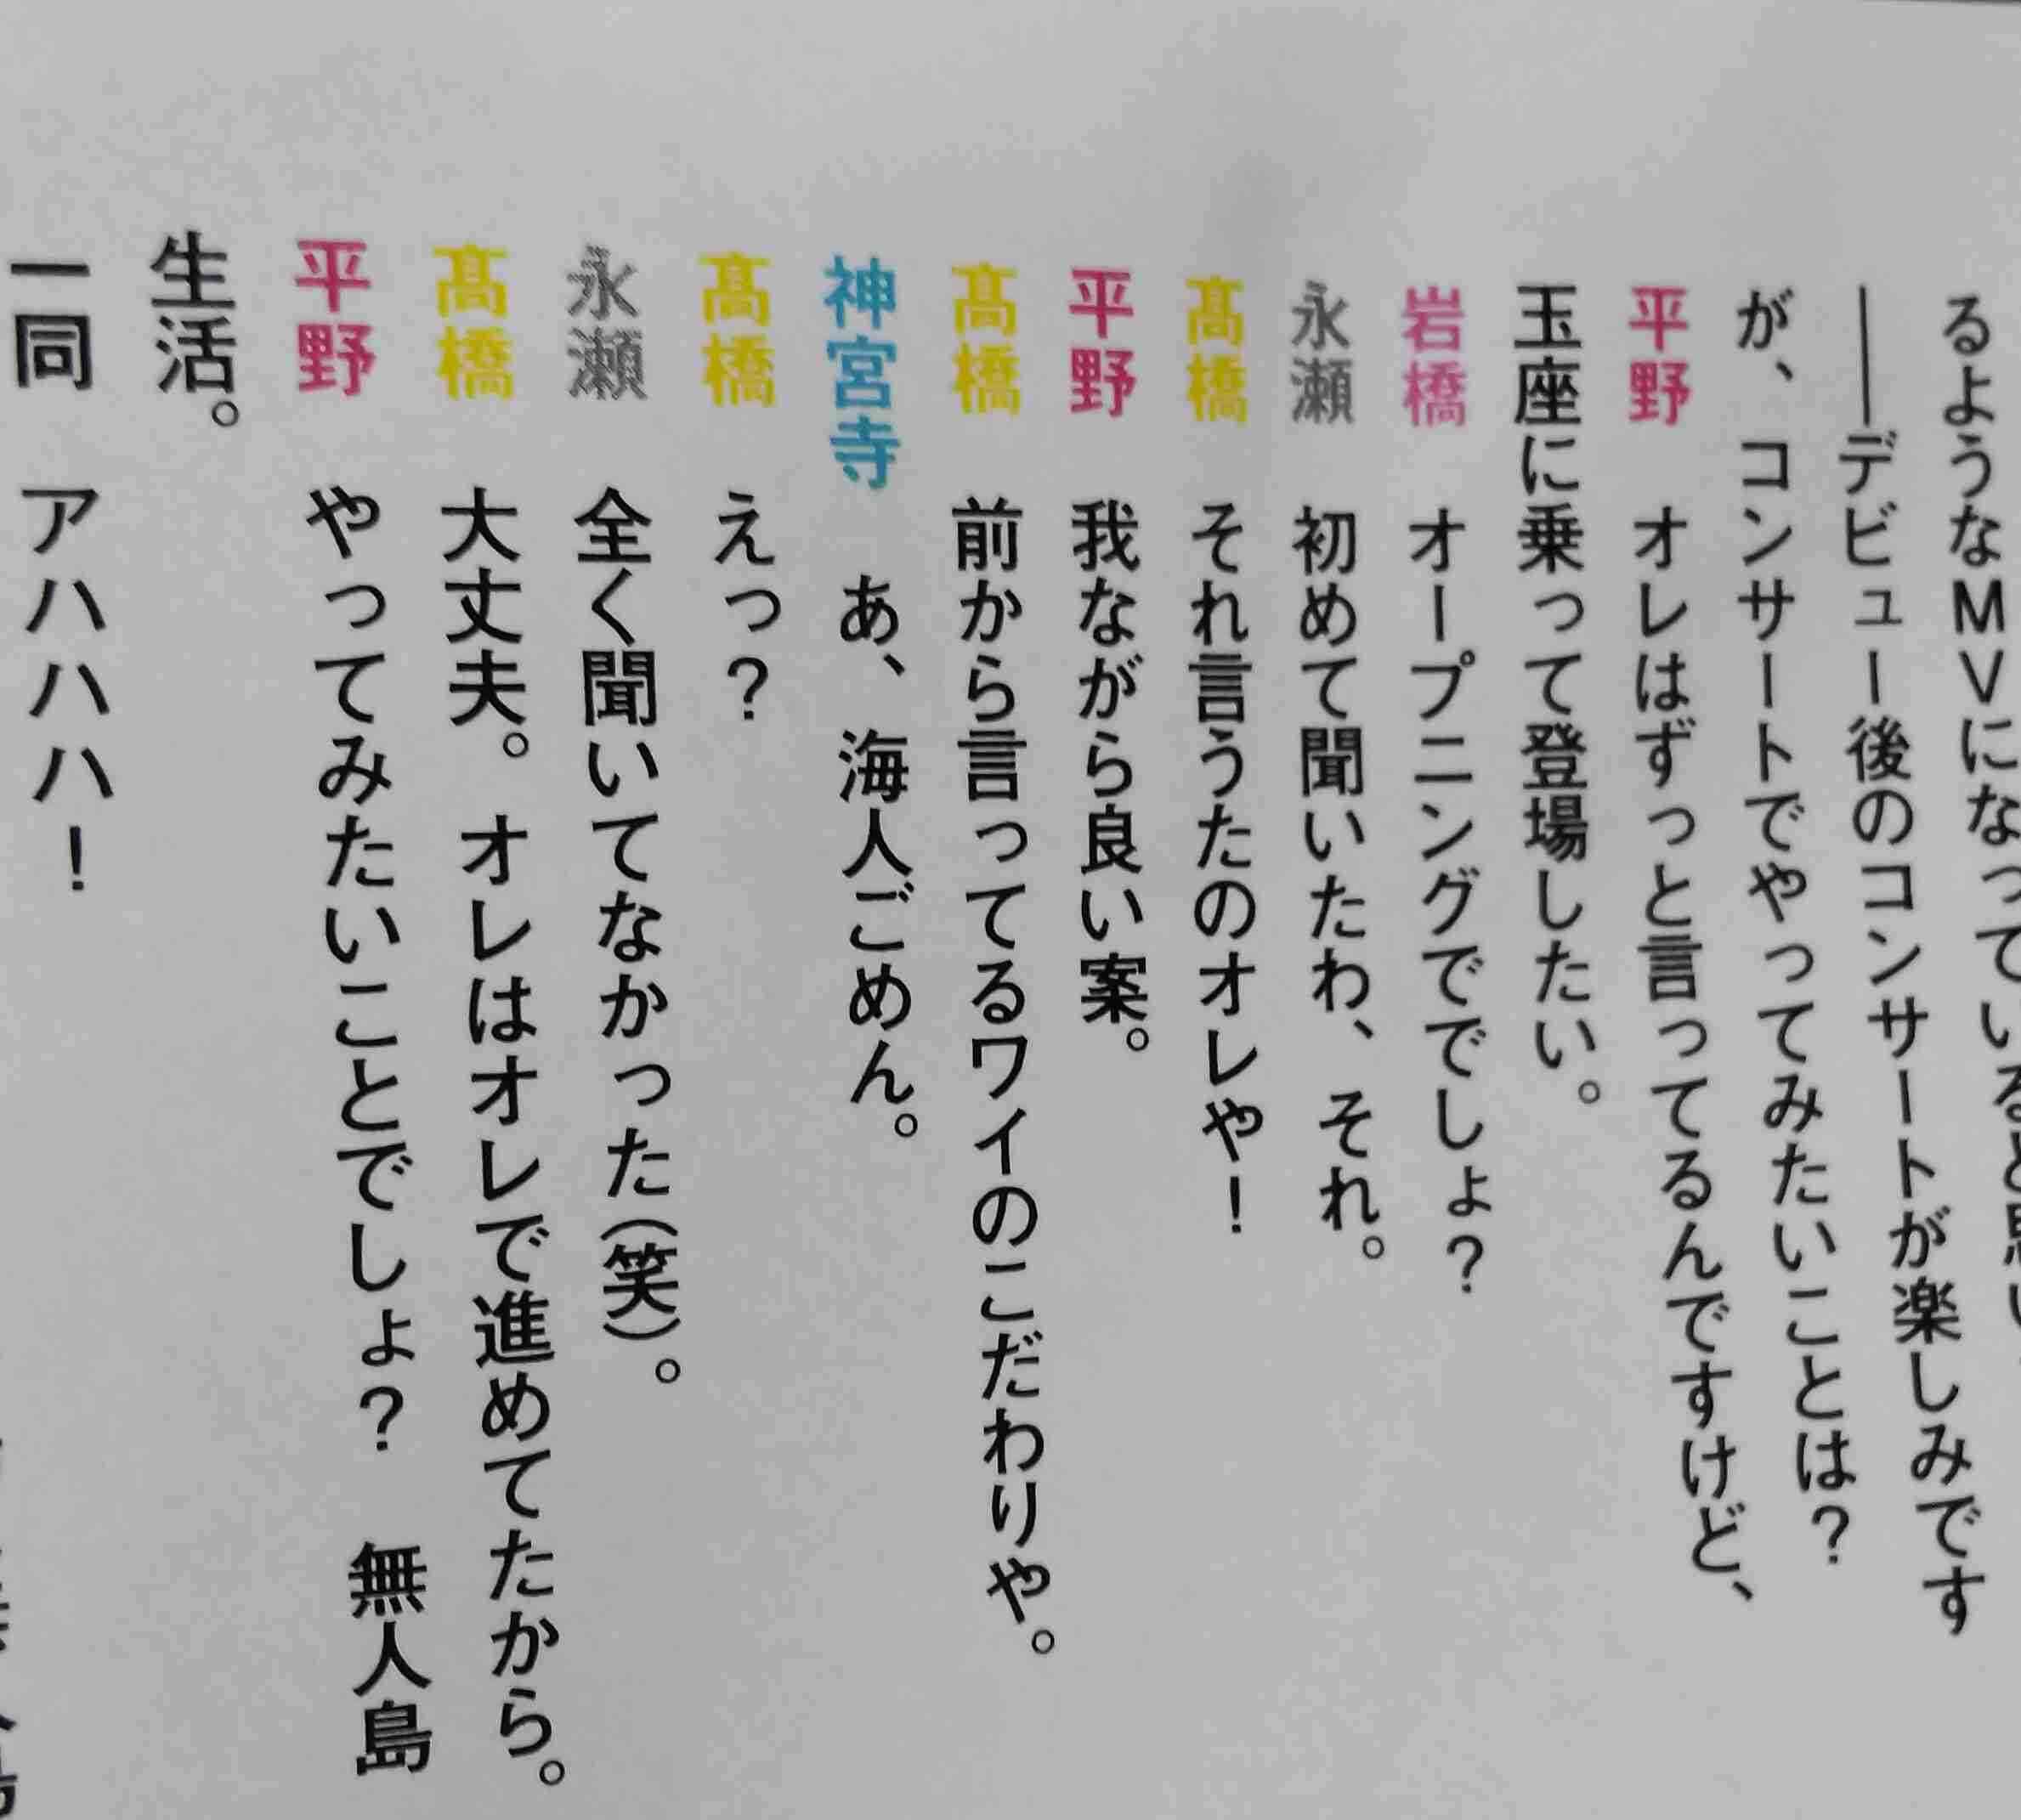 るようなMVになっていると思い
――デビュー後のコンサートが楽しみです
が、コンサートでやってみたいことは?
平野 オレはずっと言ってるんですけど、
玉座に乗って登場したい。
岩橋 オープニングででしょ?
永瀬 初めて聞いたわ、それ。
髙橋 それ言うたのオレや!
平野 我ながら良い案。
髙橋 前から言ってるワイのこだわりや。
神宮寺 あ、海人ごめん。
髙橋 えっ?
永瀬 全く聞いてなかった(笑)。
髙橋 大丈夫。オレはオレで進めてたから。
平野 やってみたいことでしょ? 無人島
生活。
一同 アハハハ!